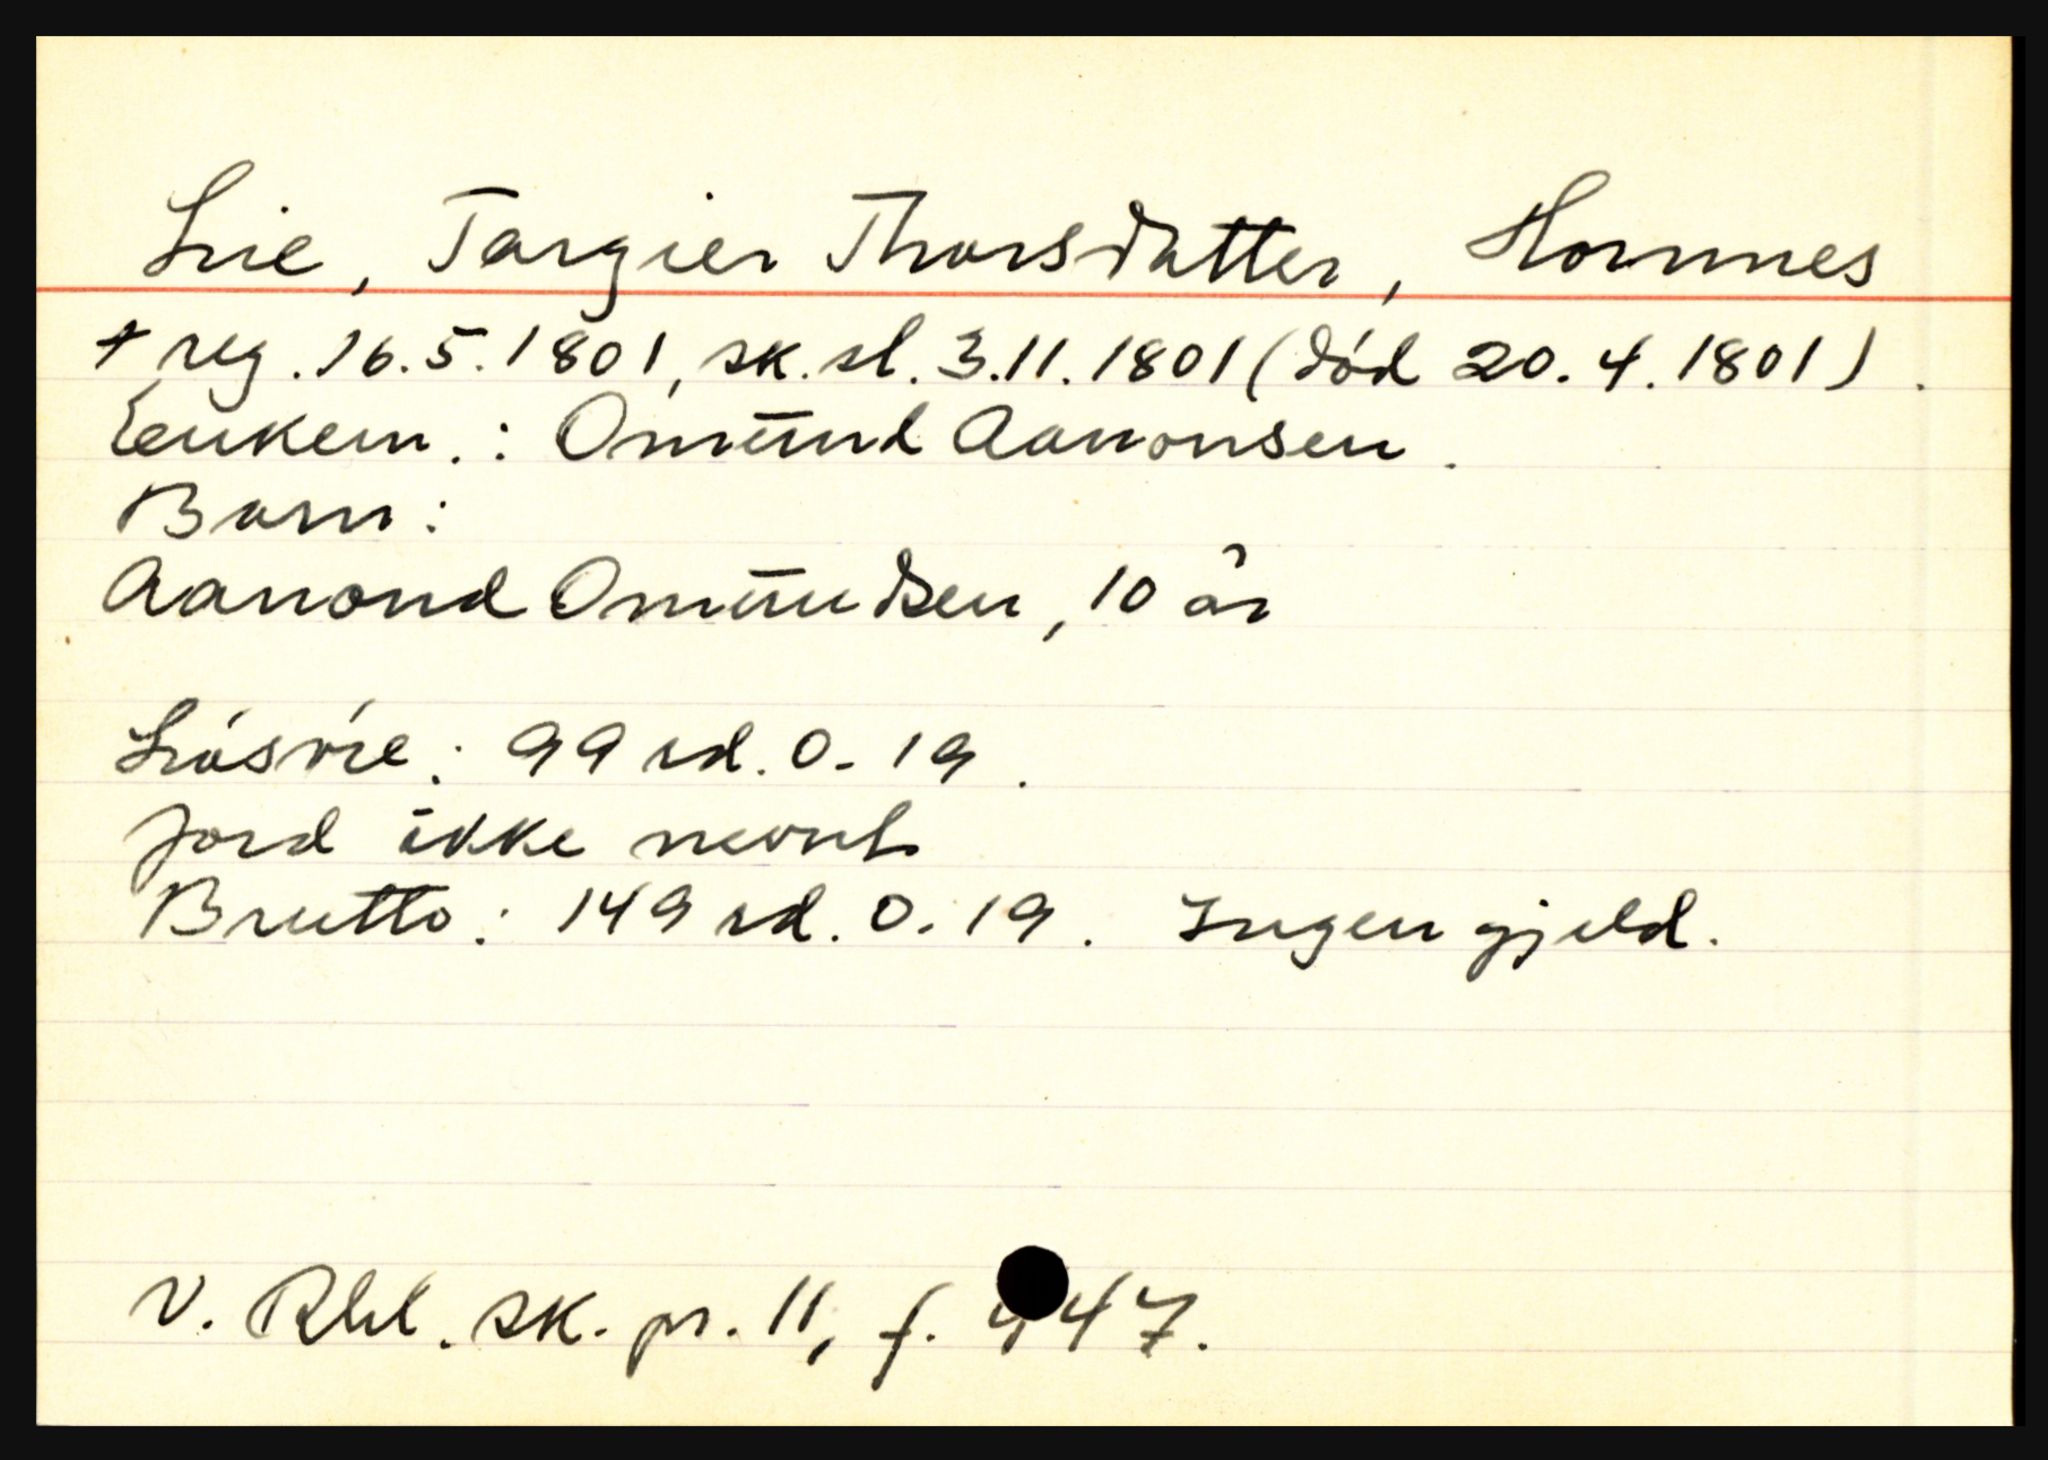 Lie, Targier Thorsdatter, Hornnes
+ reg. 16.5.1801, sk. sl. 3.11.1801 (død 20.4.1801).
Enkem.: Omund Aanonsen.
Barn:
Aanond Omundsen, 10 år
Løsøre: 99 rd. 0-19.
Jord ikke nevnt
Brutto: 149 rd. 0-19. Ingen gjeld.
V. Rbl. sk. pr. 11, f. 447.